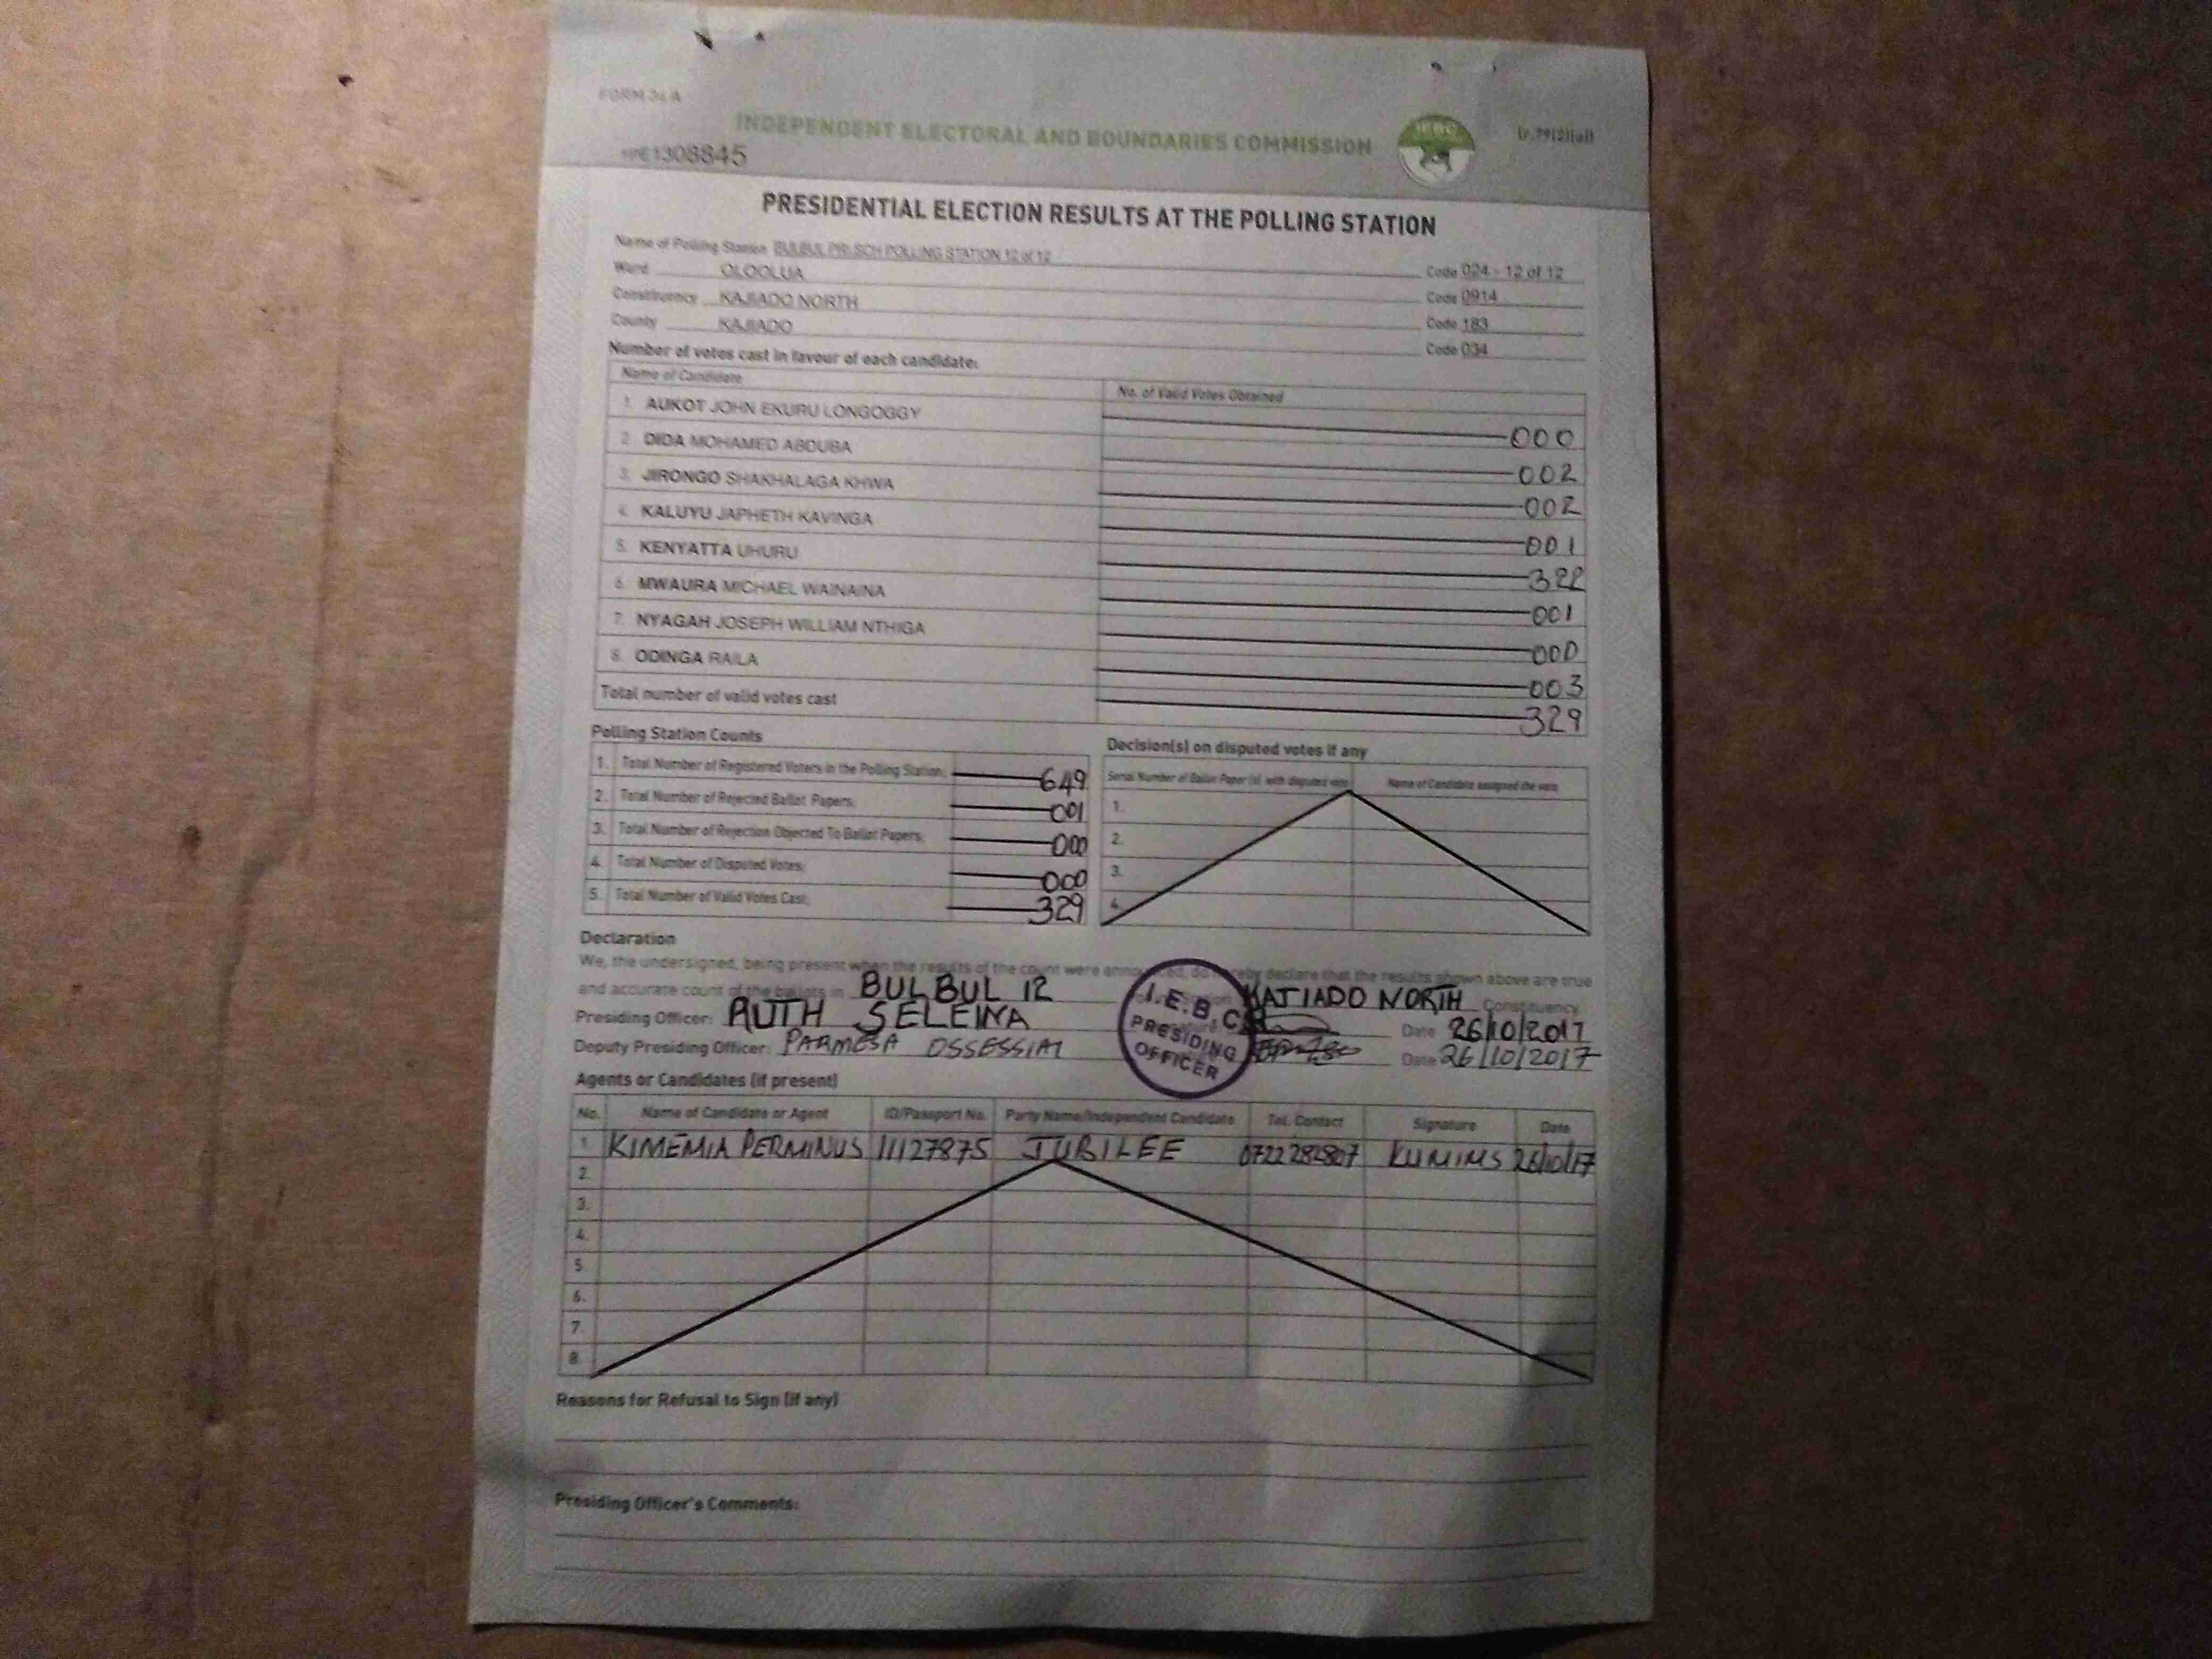 FORM 34 A
INDEPENDENT ELECTORAL AND BOUNDARIES COMMISSION
IEBC
(r.79(2)(a))
1308845
PRESIDENTIAL ELECTION RESULTS AT THE POLLING STATION
Name of Polling Station BULBUL PRI SCH POLLING STATION 12 of 12 Code 024 - 12 of 12
Ward OLOOLUA Code 0914
Constituency KAJIADO NORTH Code 183
County KAJIADO Code 034
Number of votes cast in favour of each candidate:
Name of Candidate No. of Valid Votes Obtained
1. AUKOT JOHN EKURU LONGOGGY 000
2. DIDA MOHAMED ABDUBA 002
3. JIRONGO SHAKHALAGA KHWA 002
4. KALUYU JAPHETH KAVINGA 001
5. KENYATTA UHURU 322
6. MWAURA MICHAEL WAINAINA 001
7. NYAGAH JOSEPH WILLIAM NTHIGA 000
8. ODINGA RAILA 003
Total number of valid votes cast 329
Polling Station Counts
1. Total Number of Registered Voters in the Polling Station; 649
2. Total Number of Rejected Ballot Papers; 001
3. Total Number of Rejection Objected To Ballot Papers; 000
4. Total Number of Disputed Votes; 000
5. Total Number of Valid Votes Cast; 329
Decision(s) on disputed votes if any
Serial Number of Ballot Paper (s) with disputed vote Name of Candidate assigned the vote
1.
2.
3.
4.
Declaration
We, the undersigned, being present when the results of the count were announced, do hereby declare that the results shown above are true
and accurate count of the ballots in BULBUL 12 KAJIADO NORTH Constituency
Presiding Officer: RUTH SELEINA Date 26/10/2017
Deputy Presiding Officer: PARMESA OSSESSIAI Date 26/10/2017
I.E.B.C
PRESIDING
OFFICER
Agents or Candidates (if present)
No. Name of Candidate or Agent ID/Passport No. Party Name/Independent Candidate Tel. Contact Signature Date
1. KIMEMIA PERMINUS 11127875 JUBILEE 0722282807 KUMIMS 26/10/17
2.
3.
4.
5.
6.
7
8
Reasons for Refusal to Sign (if any)
Presiding Officer's Comments: